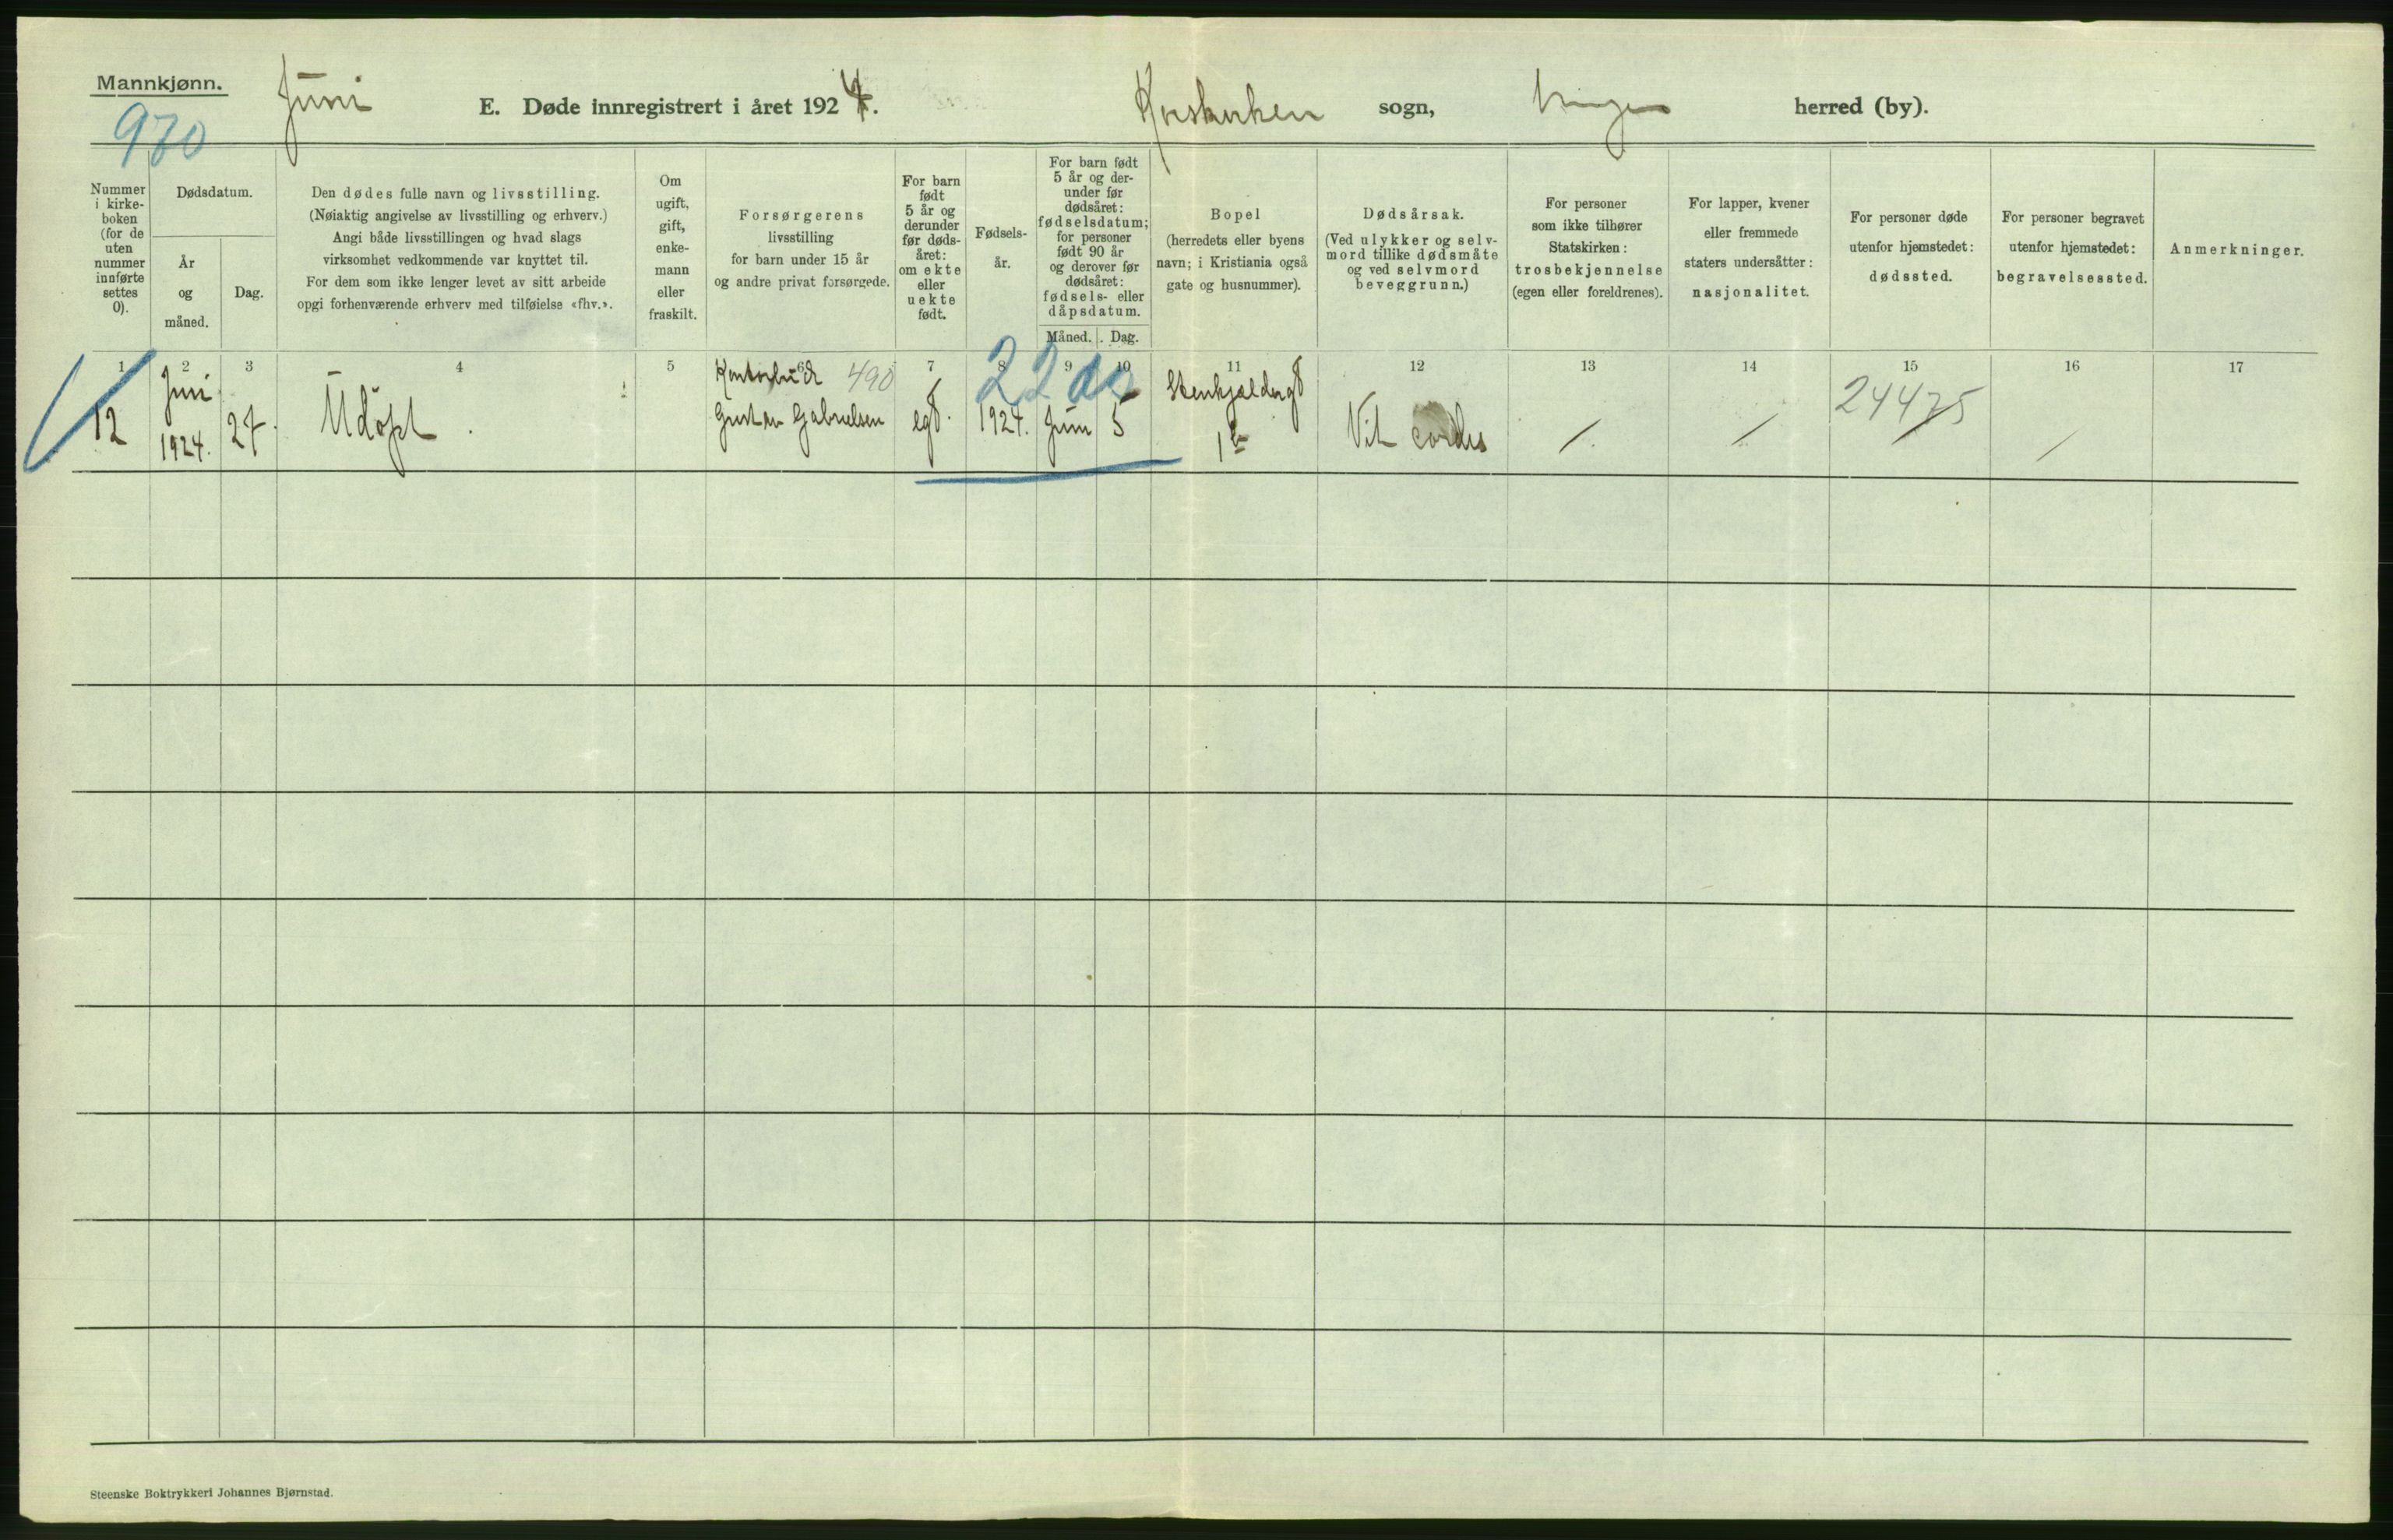 Mannkjønn.
Juni
E. Døde innregistrert i året 1924.
Korskirken sogn,
herred (by).
970
Nummer i kirke-boken (for de uten nummer innførte settes 0).
Dødsdatum.
År og måned.
Dag.
Den dødes fulle navn og livsstilling.
(Nøiaktig angivelse av livsstilling og erhverv.)
Angi både livsstillingen og hvad slags
virksomhet vedkommende var knyttet til.
For dem som ikke lenger levet av sitt arbeide
opgi forhenværende erhverv med tilføielse «fhv.».
Om ugift, gift, enke-mann eller fraskilt.
Forsørgerens
livsstilling
for barn under 15 år
og andre privat forsørgede.
For barn født 5 år og derunder før døds-året: om ekte eller uekte født.
Fødsels-år.
For barn født 5 år og der-under før dødsåret: fødselsdatum; for personer født 90 år og derover før dødsåret: fødsels- eller dåpsdatum.
Måned. Dag.
Bopel
(herredets eller byens
navn; i Kristiania også
gate og husnummer).
Dødsårsak.
(Ved ulykker og selv-
mord tillike dødsmåte
og ved selvmord
beveggrunn.)
For personer
som ikke tilhører
Statskirken:
trosbekjennelse
(egen eller foreldrenes).
For lapper, kvener
eller fremmede
staters undersåtter:
nasjonalitet.
For personer døde
utenfor hjemstedet:
dødssted.
For personer begravet
utenfor hjemstedet:
begravelsessted.
Anmerkninger.
1 2 3 4 5 6 7 8 9 10 11 12 13 14 15 16 17
12
Juni
1924.
27.
Udöpt.
Kontorbud 490
Gustav Gabrielsen
egt.
22 da
1924. Juni 5
Stenkjeldergt
1b
Vit cordis
/
/
24475
/
/
Steenske Boktrykkeri Johannes Bjørnstad.